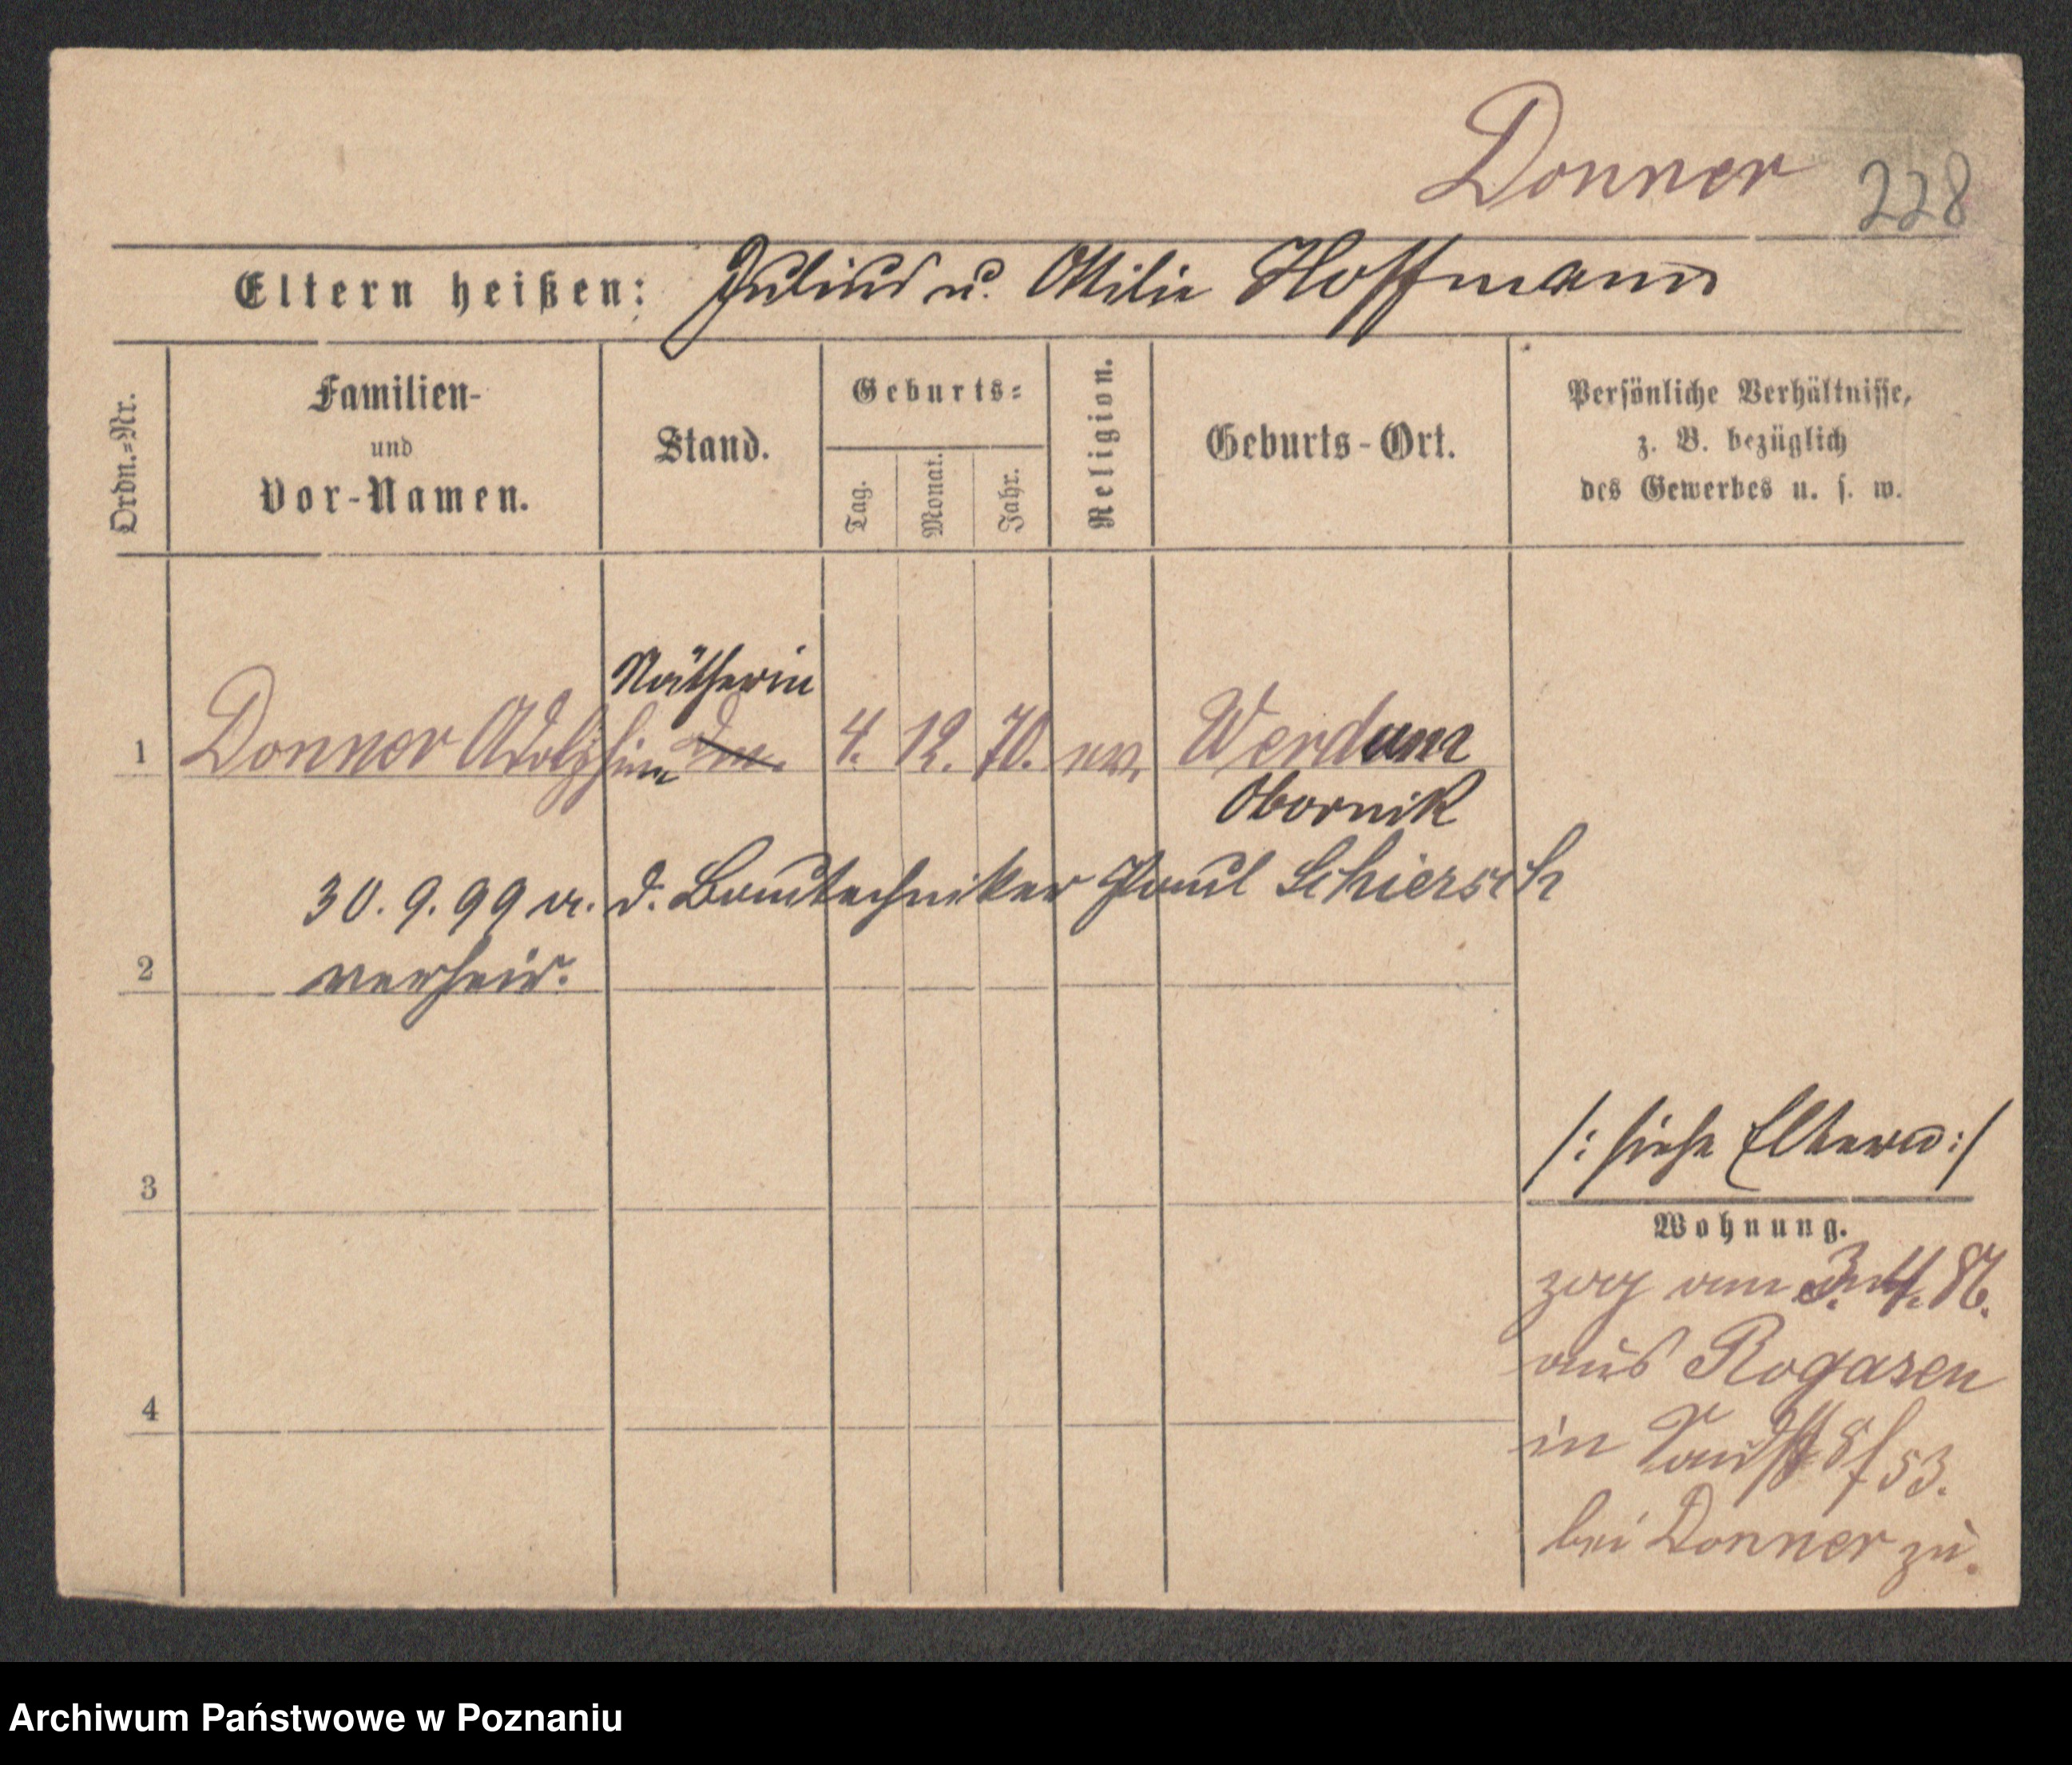 Donner 228
Eltern heißen: Julius u. Ottilie Hoffmann
Ordn.=Nr.
Familien-
und
Vor-Namen.
Stand.
Geburts=
Tag.
Monat.
Jahr.
Religion.
Geburts-Ort.
Persönliche Verhältnisse,
z. B. bezüglich
des Gewerbes u. s. w.
Nätherin
1 Donner Adolphine 4. 12. 70. ev. Werdum
Obornik
30. 9. 99 m. d. Bautechniker Paul Schiersch
2 verheir.
/: siehe Eltern :/
3
Wohnung.
zog am 3. 4. 86.
aus Rogasen
4
in 8/53.
bei Donner zu.
Archiwum Państwowe w Poznaniu